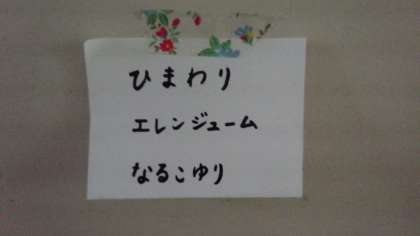 ひまわり
エレンジューム
なるこゆり